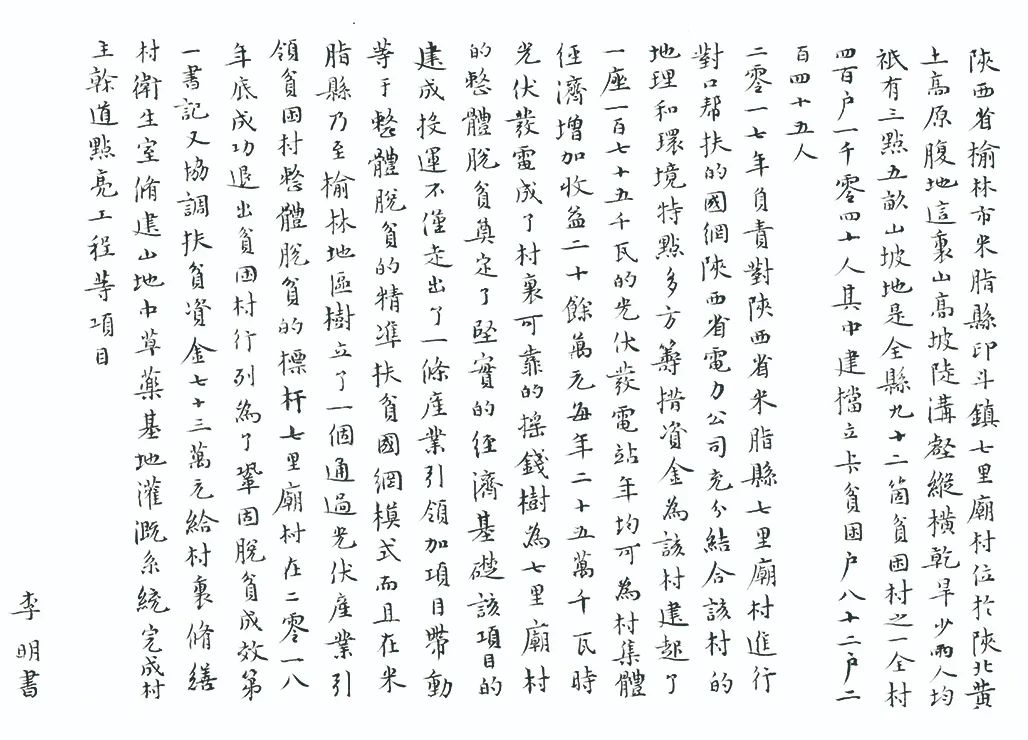 陝西省榆林市米脂縣印斗鎮七里廟村位於陝北黃
土高原腹地這裏山高坡陡溝壑縱橫乾旱少雨人均
祇有三點五畝山坡地是全縣九十二箇貧困村之一全村
四百户一千零四十人其中建檔立卡貧困户八十二户二
百四十五人
二零一七年負責對陝西省米脂縣七里廟村進行
對口帮扶的國網陝西省電力公司充分結合該村的
地理和環境特點多方籌措资金為該村建起了
一座一百七十五千瓦的光伏發電站年均可為村集體
經濟增加收益二十餘萬元每年二十五萬千瓦時
光伏發電成了村裏可靠的摇錢樹為七里廟村
的整體脫貧奠定了堅實的經濟基礎該項目的
建成投運不僅走出了一條産業引領加項目帶動
等于整體脫貧的精準扶貧國網模式而且在米
脂縣乃至榆林地區樹立了一個通過光伏産業引
領貧困村整體脫貧的標杆七里廟村在二零一八
年底成功退出貧困村行列為了鞏固脫貧成效第
一書記又協調扶貧資金七十三萬元給村裏脩繕
村衛生室脩建山地中草藥基地灌溉系統完成村
主幹道點亮工程等項目
李明書